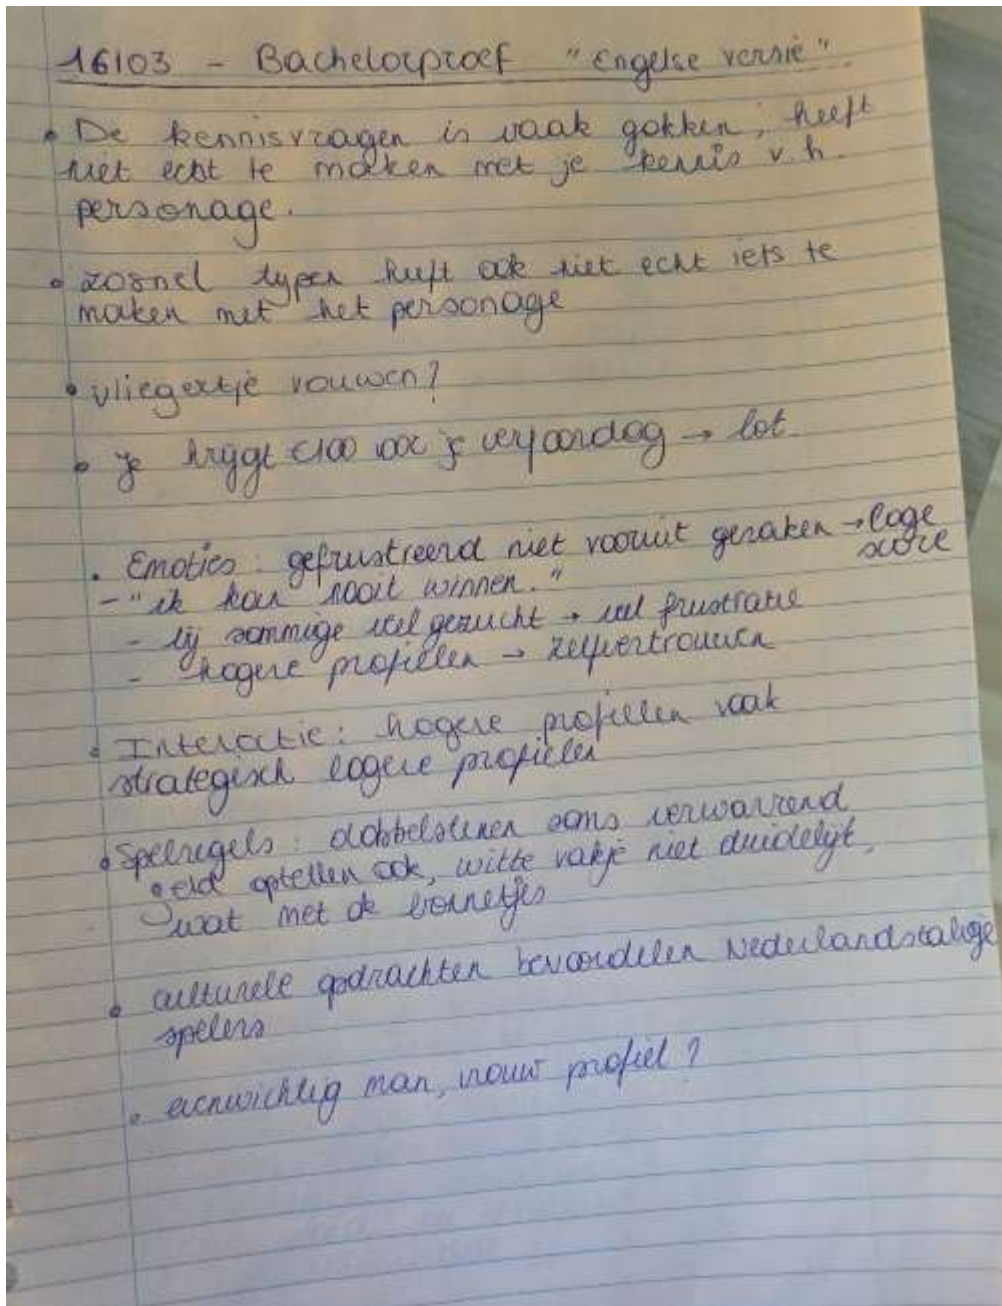 16/03 - Bachelorproef "Engelse versie"
• De kennisvragen is vaak gokken, heeft
niet echt te maken met je kennis v.h.
personage.
• zosnel typen heeft ook niet echt iets te
maken met het personage
• vliegertje vouwen?
• je krijgt €100 voor je verjaardag → lot
• Emoties: gefrustreerd niet vooruit geraken → lage
score
- "ik kan nooit winnen."
- bij sommige veel gezucht → veel frustratie
- hogere profielen → zelfvertrouwen
• Interactie: hogere profielen vaak
strategisch lagere profielen
• Spelregels: dobbelstenen soms verwarrend
geld optellen ook, witte vakje niet duidelijk,
wat met de
• culturele opdrachten bevoordelen Nederlandstalige
spelers
• evenwichtig man, vrouw profiel?